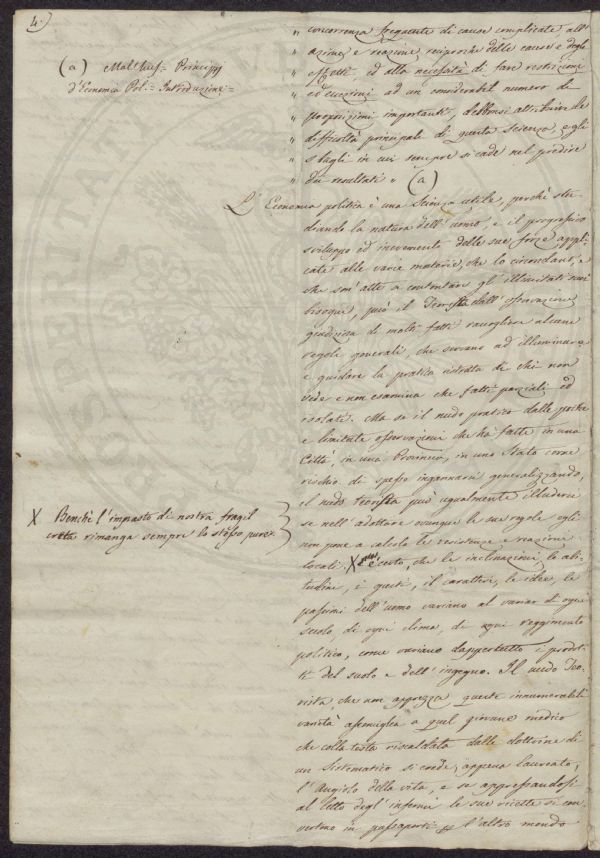 4.
(a) Malthus = Principj
d'Economia Pol. = Introduzione =
" concorrenza frequente di cause complicate all'
" azione e reazione reciproche delle cause e degli
" effetti, ed alla necessità di fare restrizioni
" ed eccezioni ad un considerabil numero di
" proposizioni importanti, debbonsi attribuire le
" difficoltà principali di questa Scienza, e gli
" sbagli in cui sempre si cade nel predire
" dei resultati " (a)
L'Economia politica è una Scienza utile, perchè stu-
diando la natura dell'uomo, e il progressivo
sviluppo ed incremento delle sue forze appli-
cate alle varie materie, che lo circondano, e
che son' atte a contentare gl'illimitati suoi
bisogni, può il Teorista dall'osservazione
giudiziosa di molti fatti raccogliere alcune
regole generali, che servano ad illuminare
e guidare la pratica ristretta di chi non
vede e non esamina che fatti parziali ed
isolati. Ma se il nudo pratico dalle poche
e limitate osservazioni che ha fatte in una
Città, in una Provincia, in uno Stato corre
rischio di spesso ingannarsi generalizzando,
il nudo Teorista può ugualmente illudersi
se nell'adottare ovunque le sue regole egli
non pone a calcolo le resistenze e reazioni
locali. X è certo, che le inclinazioni, le abi-
tudini, i gusti, il carattere, le idee, le
passioni dell'uomo variano al variar d'ogni
suolo, di ogni clima, di ogni reggimento
politico, come variano dappertutto i prodot-
ti del suolo e dell'ingegno. Il nudo Teo-
rista, che non apprezza queste innumerabili
varietà assomiglia a quel giovane medico
che colla testa riscaldata dalle dottrine di
un Sistematico si crede, appena laureato,
l'Angiolo della vita, e se appressandosi
al letto degl'infermi le sue ricette si con-
vertono in passaporti per l'altro mondo
X Benchè l'impasto di nostra fragil
creta rimanga sempre lo stesso pure